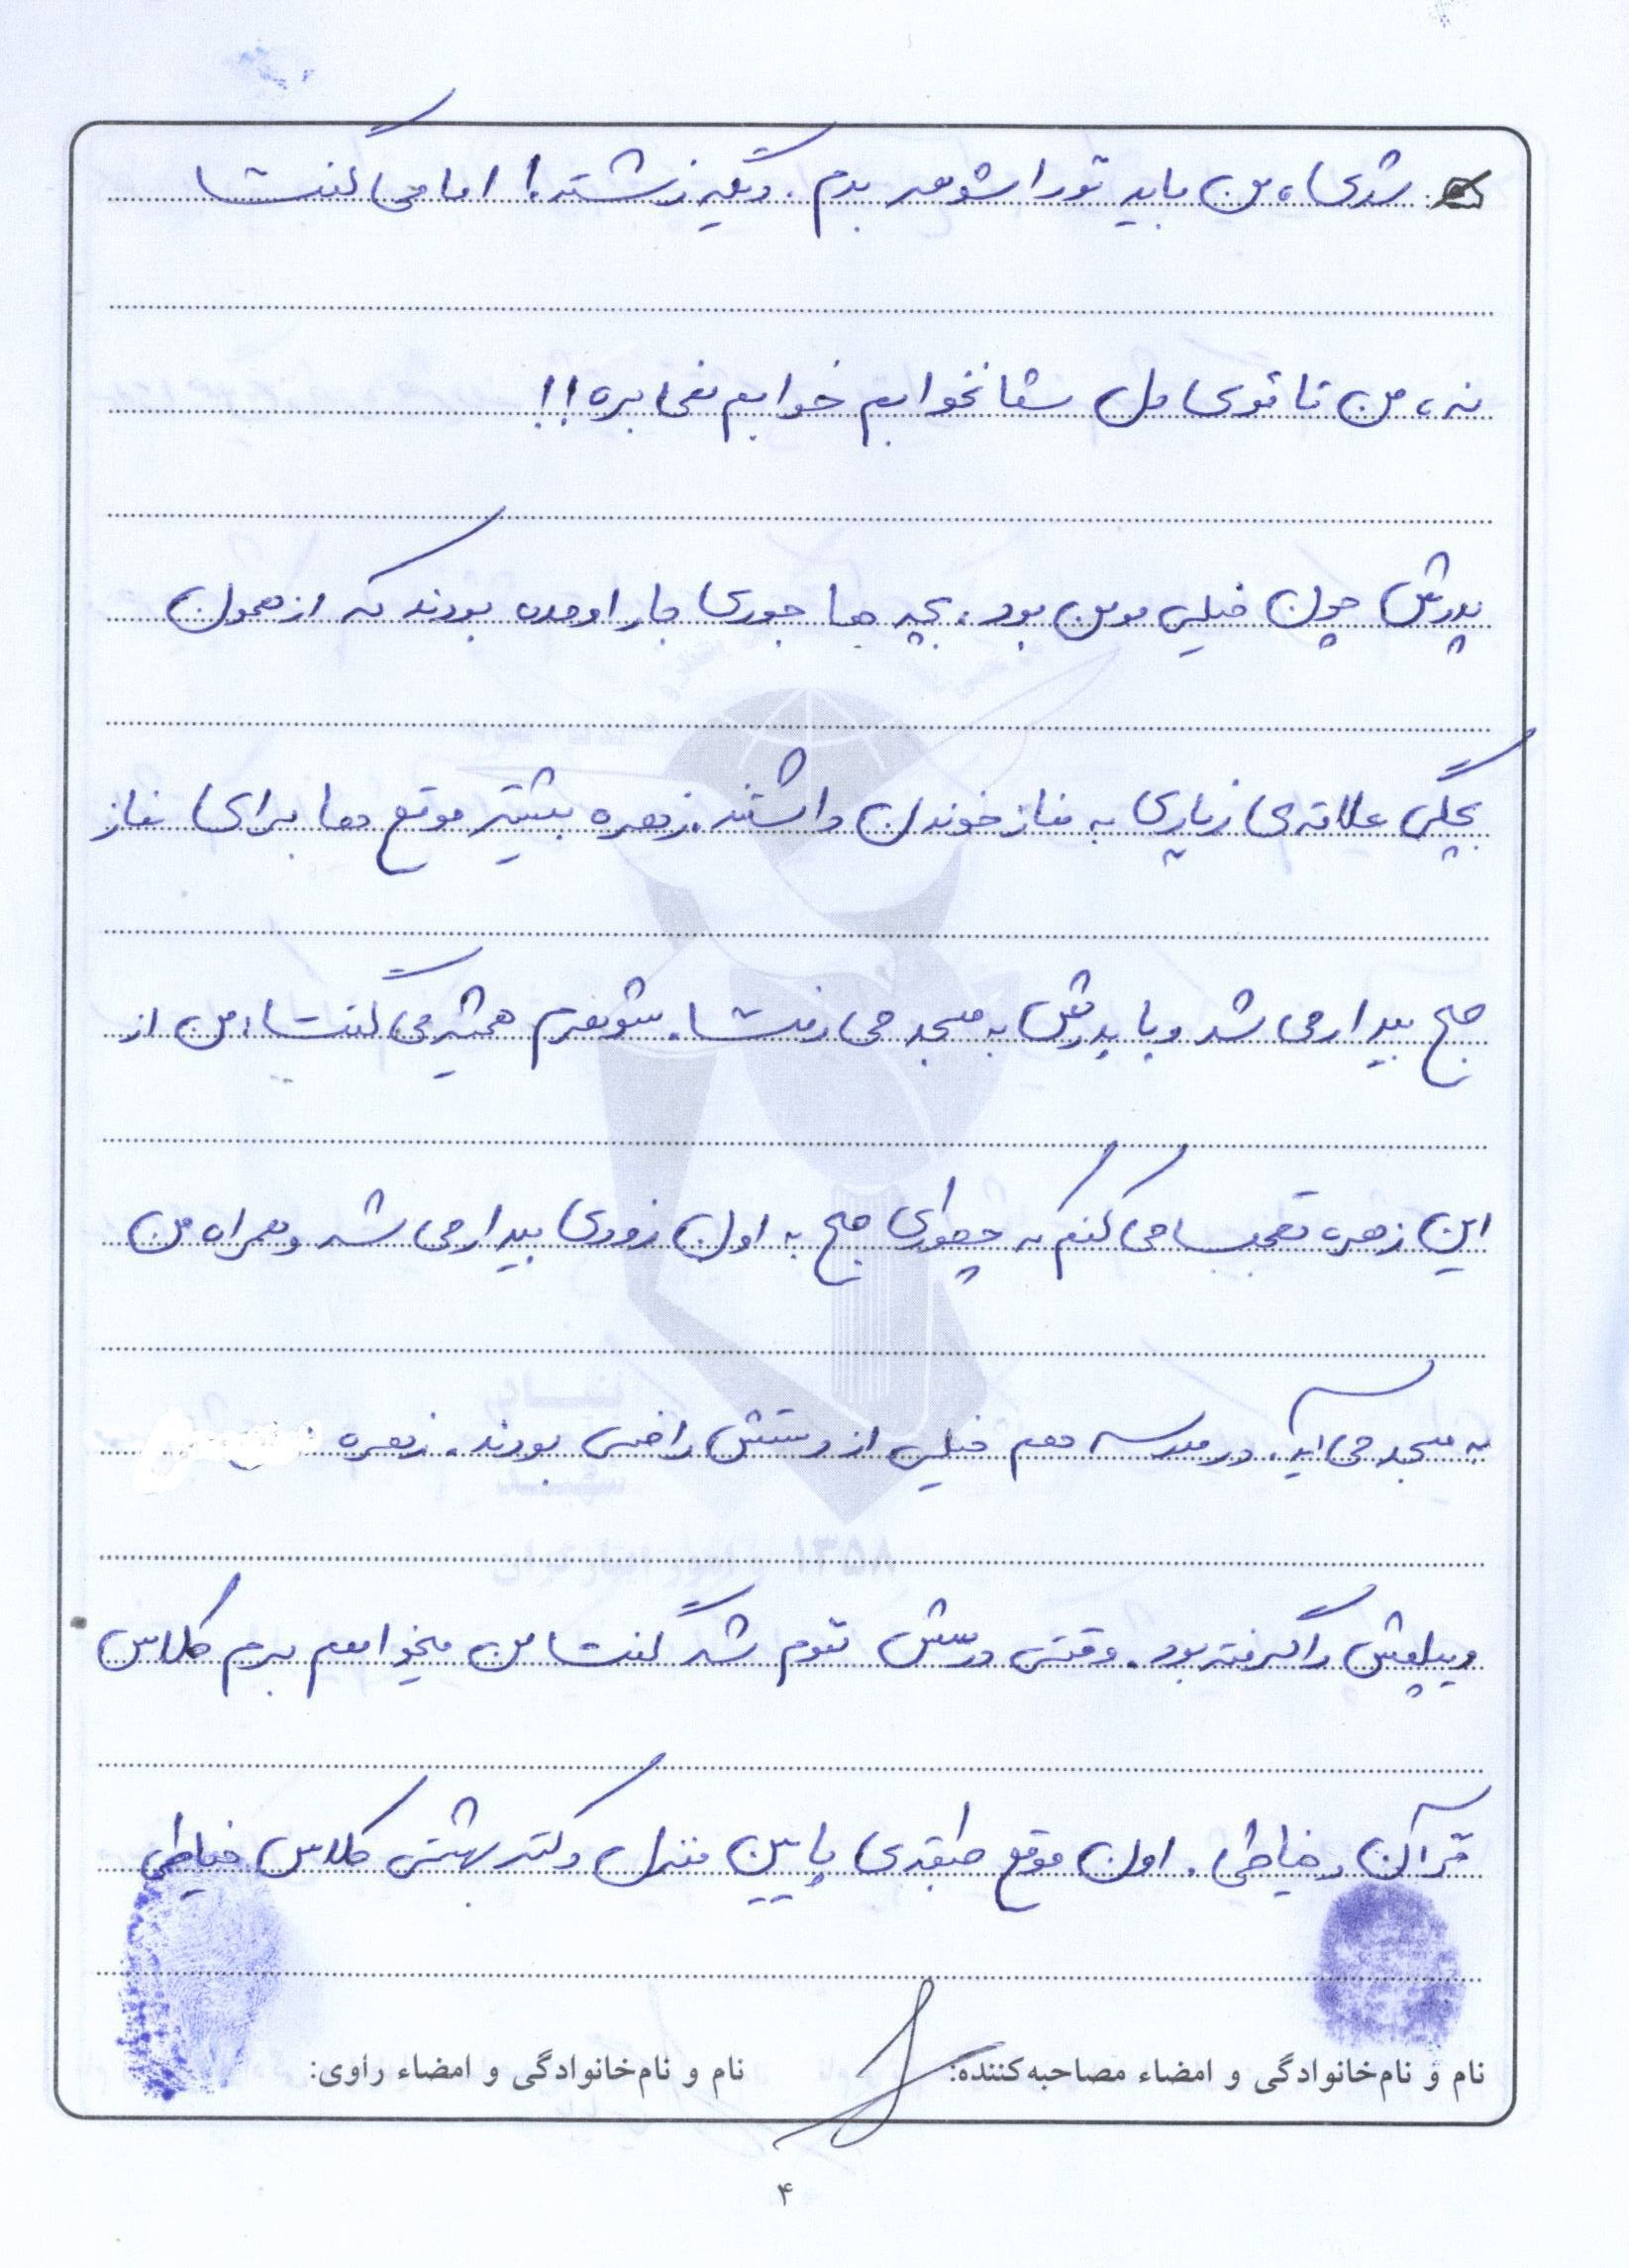 شدی، من باید تو را شوهر بدم. دیگه زشته! اما می گفت
نه، من تا توی بغل شما نخوابم خوابم نمی بره!!
پدرش چون خیلی مومن بود. بچه ها جوری بار اومده بودند که از همون
بچگی علاقه ی زیادی به نماز خوندن داشتند. زهره بیشتر موقع ها برای نماز
صبح بیدار می شد و با پدرش به مسجد می رفت. شوهرم همیشه می گفت: من از
این زهره تعجب می کنم که چطوری صبح به اون زودی بیدار می شه و همراه من
به مسجد می آید. در مدرسه هم خیلی از دستش راضی بودند. زهره
دیپلمش را گرفته بود. وقتی درسش تموم شد گفت من میخواهم برم کلاس
قرآن و خیاطی. اون موقع طبقه ی پایین منزل دکتر بهشتی کلاس خیاطی
نام و نام‌خانوادگی و امضاء مصاحبه‌کننده: نام و نام‌خانوادگی و امضاء راوی:
۴